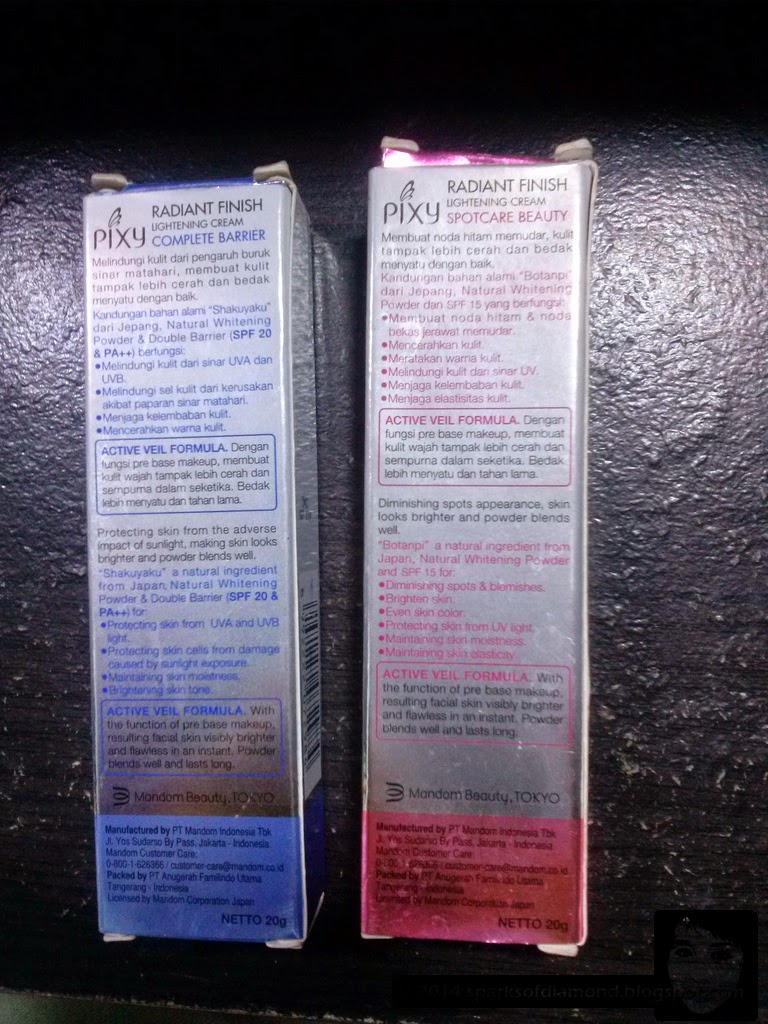 RADIANT FINISH
LIGHTENING CREAM
PIXY COMPLETE BARRIER
Melindungi kulit dari pengaruh buruk
sinar matahari, membuat kulit
tampak lebih cerah dan bedak
menyatu dengan baik.
Kandungan bahan alami "Shakuyaku"
dari Jepang, Natural Whitening
Powder & Double Barrier (SPF 20
& PA++) berfungsi:
•Melindungi kulit dari sinar UVA dan
UVB.
•Melindungi sel kulit dari kerusakan
akibat paparan sinar matahari.
•Menjaga kelembaban kulit.
•Mencerahkan warna kulit.
ACTIVE VEIL FORMULA. Dengan
fungsi pre base makeup, membuat
kulit wajah tampak lebih cerah dan
sempurna dalam seketika. Bedak
lebih menyatu dan tahan lama.
Protecting skin from the adverse
impact of sunlight, making skin looks
brighter and powder blends well.
"Shakuyaku" a natural ingredient
from Japan, Natural Whitening
Powder & Double Barrier (SPF 20 &
PA++) for:
•Protecting skin from UVA and UVB
light.
•Protecting skin cells from damage
caused by sunlight exposure.
•Maintaining skin moistness.
•Brightening skin tone.
ACTIVE VEIL FORMULA. With
the function of pre base makeup,
resulting facial skin visibly brighter
and flawless in an instant. Powder
blends well and lasts long.
Mandom Beauty, TOKYO
Manufactured by PT Mandom Indonesia Tbk
Jl. Yos Sudarso By Pass, Jakarta - Indonesia
Mandom Customer Care:
0-800-1-626366 / customer-care@mandom.co.id
Packed by PT Anugerah Familindo Utama
Tangerang - Indonesia
Licensed by Mandom Corporation Japan
NETTO 20g
RADIANT FINISH
LIGHTENING CREAM
PIXY SPOTCARE BEAUTY
Membuat noda hitam memudar, kulit
tampak lebih cerah dan bedak
menyatu dengan baik.
Kandungan bahan alami "Botanpi"
dari Jepang, Natural Whitening
Powder dan SPF 15 yang berfungsi:
•Membuat noda hitam & noda
bekas jerawat memudar.
•Mencerahkan kulit.
•Meratakan warna kulit.
•Melindungi kulit dari sinar UV.
•Menjaga kelembaban kulit.
•Menjaga elastisitas kulit.
ACTIVE VEIL FORMULA. Dengan
fungsi pre base makeup, membuat
kulit wajah tampak lebih cerah dan
sempurna dalam seketika. Bedak
lebih menyatu dan tahan lama.
Diminishing spots appearance, skin
looks brighter and powder blends
well.
"Botanpi" a natural ingredient from
Japan, Natural Whitening Powder
and SPF 15 for:
•Diminishing spots & blemishes.
•Brighten skin.
•Even skin color.
•Protecting skin from UV light.
•Maintaining skin moistness.
•Maintaining skin elasticity.
ACTIVE VEIL FORMULA. With
the function of pre base makeup,
resulting facial skin visibly brighter
and flawless in an instant. Powder
blends well and lasts long.
Mandom Beauty, TOKYO
Manufactured by PT Mandom Indonesia Tbk
Jl. Yos Sudarso By Pass, Jakarta - Indonesia
Mandom Customer Care:
0-800-1-626366 / customer-care@mandom.co.id
Packed by PT Anugerah Familindo Utama
Tangerang - Indonesia
Licensed by Mandom Corporation Japan
NETTO 20g
2014 sparksofdiamond.blogspot.com